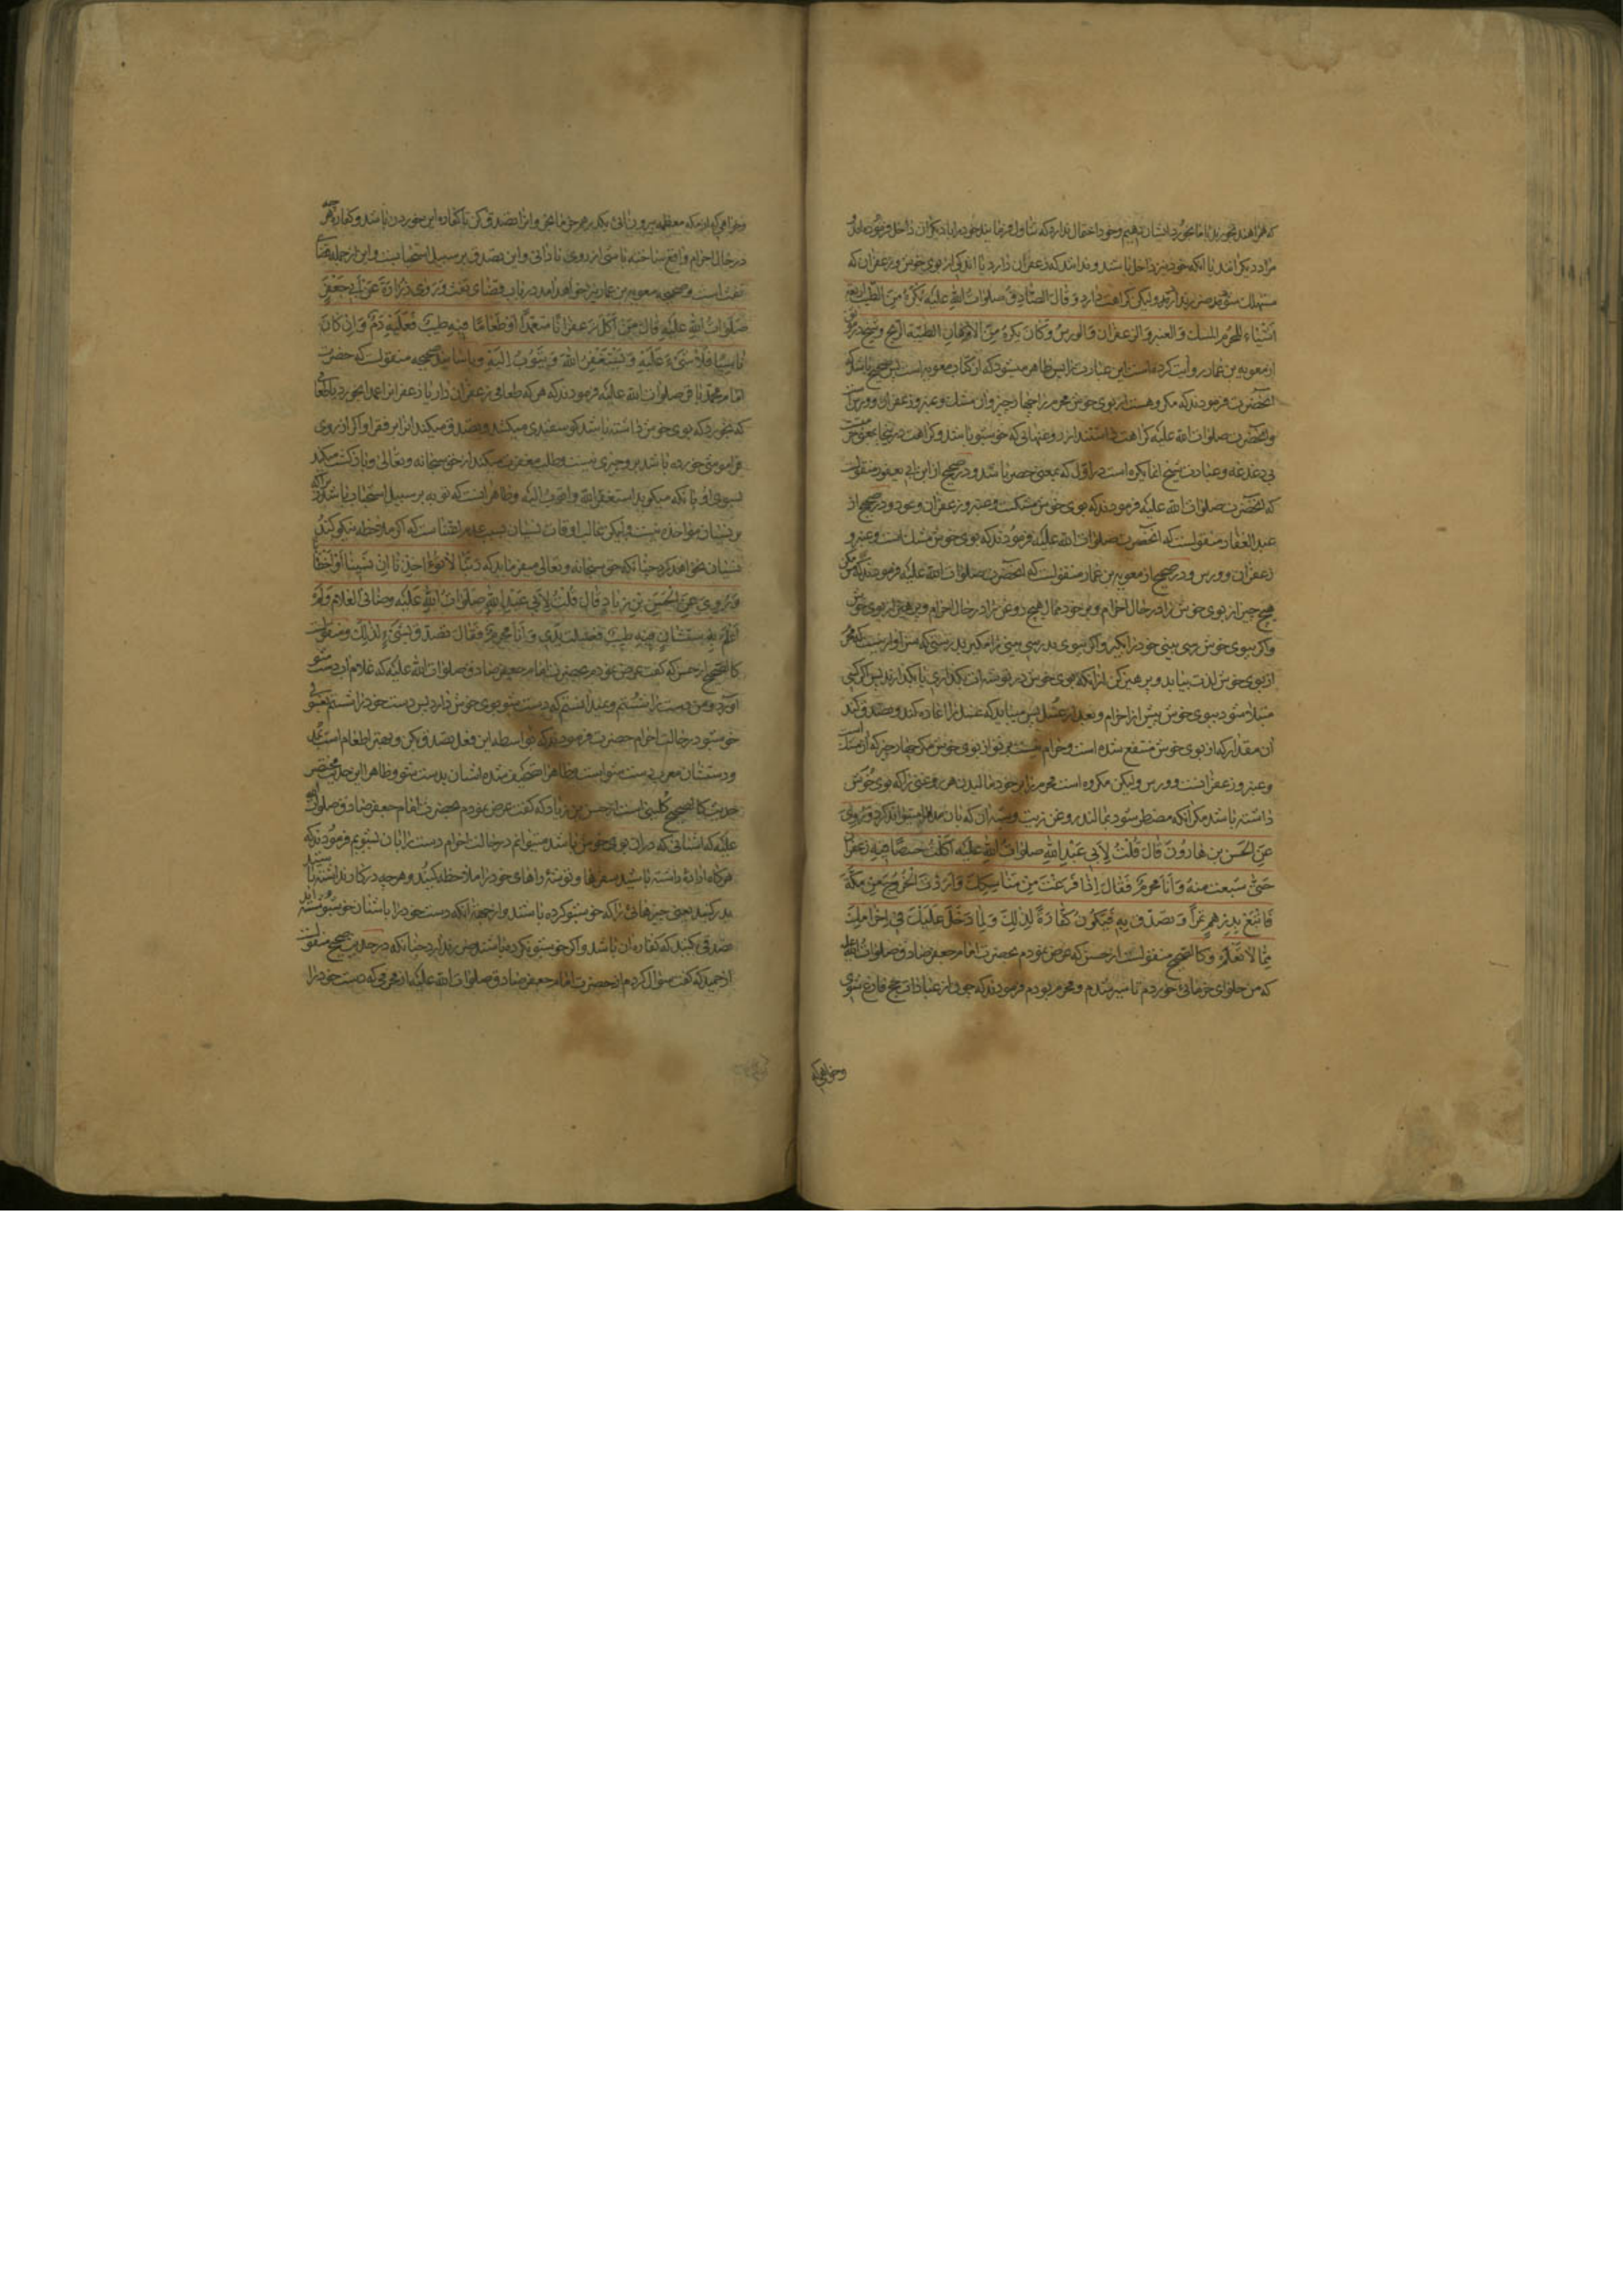 که هر اهند بخورید یا ما بخورد ایشان بدهیم وخود احتمال ندارد که تناول فرمایند خود را با دیگران داخل فرموده‌اند
مراد دیکرانند یا آنکه خود نیز داخل باشند و ندانند که زعفران دارد یا اندکی از بوی خوش و زعفران که
مستهلک شود ضرر ندارد ولیکن کراهت دارد وَقالَ الصّادِقُ صلواتُ اللهِ علیه یُکْرَهُ مِنَ الطّیبِ اربعة
اَشْیاءَ لِلْمُحرِمِ المسك وَالعنبر وَالزعفران وَالورسُ وَکانَ یکرهُ مِنَ الاَدْهانِ الطیّبة الرّیح وشیخ
از معویه بن عمار روایت کرده‌است این عبارت را پس ظاهر میشود که از کتاب معویه است پس صحیح باشد که
آنحضرت فرمودند که مکروهست از بوی خوش محرم را چهار چیز وآن مشک وعنبر وزعفران وورس است
وآنحضرت صلوات الله علیه کراهت داشتند از روغنهائی که خوشبو باشد وکراهت در اینجا بمعنی حرمت
بی دغدغه وعبارت شیخ انما یکره است در اول که بمعنی حصر باشد ودر صحیح از ابن ابی یعفور منقولست
که آنحضرت صلوات الله علیه فرمودند که بوی خوش مشکست وعنبر وزعفران وعود ودر صحیح از
عبد الغفار منقولست که آنحضرت صلوات الله علیه فرمودند که بوی خوش مشک است وعنبر و
زعفران وورس ودر صحیح از معویه بن عمار منقولست که آنحضرت صلوات الله علیه فرمودند که مس مکن
هیچ چیز از بوی خوش را در حال احرام وبر خود ممال هیچ روغن را در حال احرام وبپرهیز از بوی خوش
واکر ببوی خوش رسی بینی خود را بکیر واکر ببوی بد رسی بینی را مکیر بدرستی که سزاوار نیست که محرم
از بوی خوش لذت بیابد وپرهیز کن از آنکه بوی خوش در توشه‌ات بگذاری یا بگذارند پس اگر کسی
مبتلا شود ببوی خوش پیش از احرام وبعد از غسل پس میباید که غسل را اعاده کند وتصدق کند
آن مقدار که از بوی خوش منتفع شده است وحرام نیست بر تو از بوی خوش مکر چهار چیز که آن مشک است
وعنبر وزعفرانست وورس ولیکن مکروه است محرم را بر خود مالیدن هر روغنی را که بوی خوش
داشته باشد مکر آنکه مضطر شود بمالند روغن زیت وشبه آن که بآن مداوا میتواند کرد وَرُوِیَ
عَنِ الحَسَنِ بنِ هارُونَ قالَ قُلْتُ لِاَبی عَبْدِ اللهِ صلواتُ اللهِ علیه اَکَلْتُ خبیصًا فیهِ زعفران
حَتّی شَبِعْتُ مِنهُ وَاَنَا مُحرِمٌ فَقالَ اِذا فَرَغْتَ مِنْ مَناسِکِكَ وَاَرَدْتَ الْخُرُوجَ مِنْ مَکَّةَ
فَابْتَعْ بِدِرْهَمٍ تَمْرًا وَتَصَدَّقْ بِهِ فَیَکُونُ کَفّارَةً لِذٰلِكَ وَلِما دَخَلَ عَلَیْكَ فی اِحْرامِكَ
مِمّا لا تَعْلَمُ وکالصحیح منقولست از حسن که عرض نمودم بحضرت امام جعفر صادق صلوات الله علیه
که من حلوای خرمائی خوردم تا سیر شدم ومحرم بودم فرمودند که چون از عبادات حج فارغ شوی
وخواهی که
وخواهی که از مکه معظمه بیرون آئی بیکدرهم خرما بخر وآنرا تصدق کن تا کفاره این خوردن باشد وکفاره هر چه
در حال احرام واقع ساخته باشی از روی نادانی واین تصدق بر سبیل استحبابست واین از جمله قضای
تفث است وصحیحه معویه بن عمار نیز خواهد آمد در باب قضای تفث وَرَوی زُرارَةُ عَنْ اَبی جَعْفَرٍ
صَلَواتُ اللهِ عَلَیْهِ قالَ مَنْ اَکَلَ زعفرانًا مُتَعَمِّدًا اَوْ طَعامًا فیهِ طیبٌ فَعَلَیْهِ دَمٌ وَاِنْ کانَ
ناسِیًا فَلا شَیْءَ عَلَیْهِ وَیَسْتَغْفِرُ اللهَ وَیَتُوبُ اِلَیْهِ وباسانید صحیحه منقولست که حضرت
امام محمد باقر صلوات الله علیه فرمودند که هر که طعامی زعفران دار یا زعفران عمدا بخورد یا طعامی
که بخورد که بوی خوش داشته باشد کوسفندی میکشد وتصدق میکند آنرا بر فقرا واکر از روی
فراموشی خورده باشد برو چیزی نیست وطلب مغفرت میکند از حق سبحانه وتعالی وبازکشت میکند
بسوی او بآنکه میکوید استغفر الله واتوب الیه وظاهر آنست که توبه بر سبیل استحباب باشد چرا که
بر نسیان مواخذه نیست ولیکن غالب اوقات نسیان بسبب عدم اعتناست که اکر ملاحظه نیکو کنند
نسیان نخواهد کرد چنانکه حق سبحانه وتعالی میفرماید که رَبَّنا لا تُؤاخِذْنا اِنْ نَسینا اَوْ اَخْطَأْنا
وَرُوِیَ عَنِ الْحَسَنِ بْنِ زِیادٍ قالَ قُلْتُ لِاَبی عَبْدِ اللهِ صَلَواتُ اللهِ عَلَیْهِ وضّأنی الغلام وَلَمْ
اَعْلَمْ بِدستشان فیهِ طیبٌ فغسلت یدی وَاَنا مُحرِمٌ فَقالَ تَصَدَّقْ بِشَیْءٍ لِذٰلِكَ ومنقولست
کالصحیح از حسن که کفت عرض نمودم بحضرت امام جعفر صادق صلوات الله علیه که غلام آب دست شو
آورد ومن دست را شستم ونمیدانستم که دست شو بوی خوش دارد پس دست خود را شستم
خوشبو در حالت احرام حضرت فرمودند که بواسطه این فعل تصدق بکن وبهتر اطعام است
ودستشان معرب دست شو است وظاهرا تصحیف شده اشنان بدست شو وظاهرا این حدیث مختصر
حدیث کالصحیح کلینی است از حسن بن زیاد که کفت عرض نمودم بحضرت امام جعفر صادق صلوات الله
علیه که اشنانی که در آن بوی خوش باشد میتوانم در حالت احرام دست را بآن بشویم فرمودند که
هرکاه اراده داشته باشید سفرها وتوشه راهای خود را ملاحظه کنید وهر چه درکار نداشته باشید
بدر کنید یعنی چیزهائی را که خوشبو کرده باشند واز جهة آنکه دست خود را باشنان خوشبو شسته‌اید
صدقه کنید که کفاره آن باشد واکر خوشبو نکرده باشند ضرر ندارد چنانکه در حدیث صحیح منقولست
از حمید که کفت سؤال کردم از حضرت امام جعفر صادق صلوات الله علیه از محرمی که دست خود را